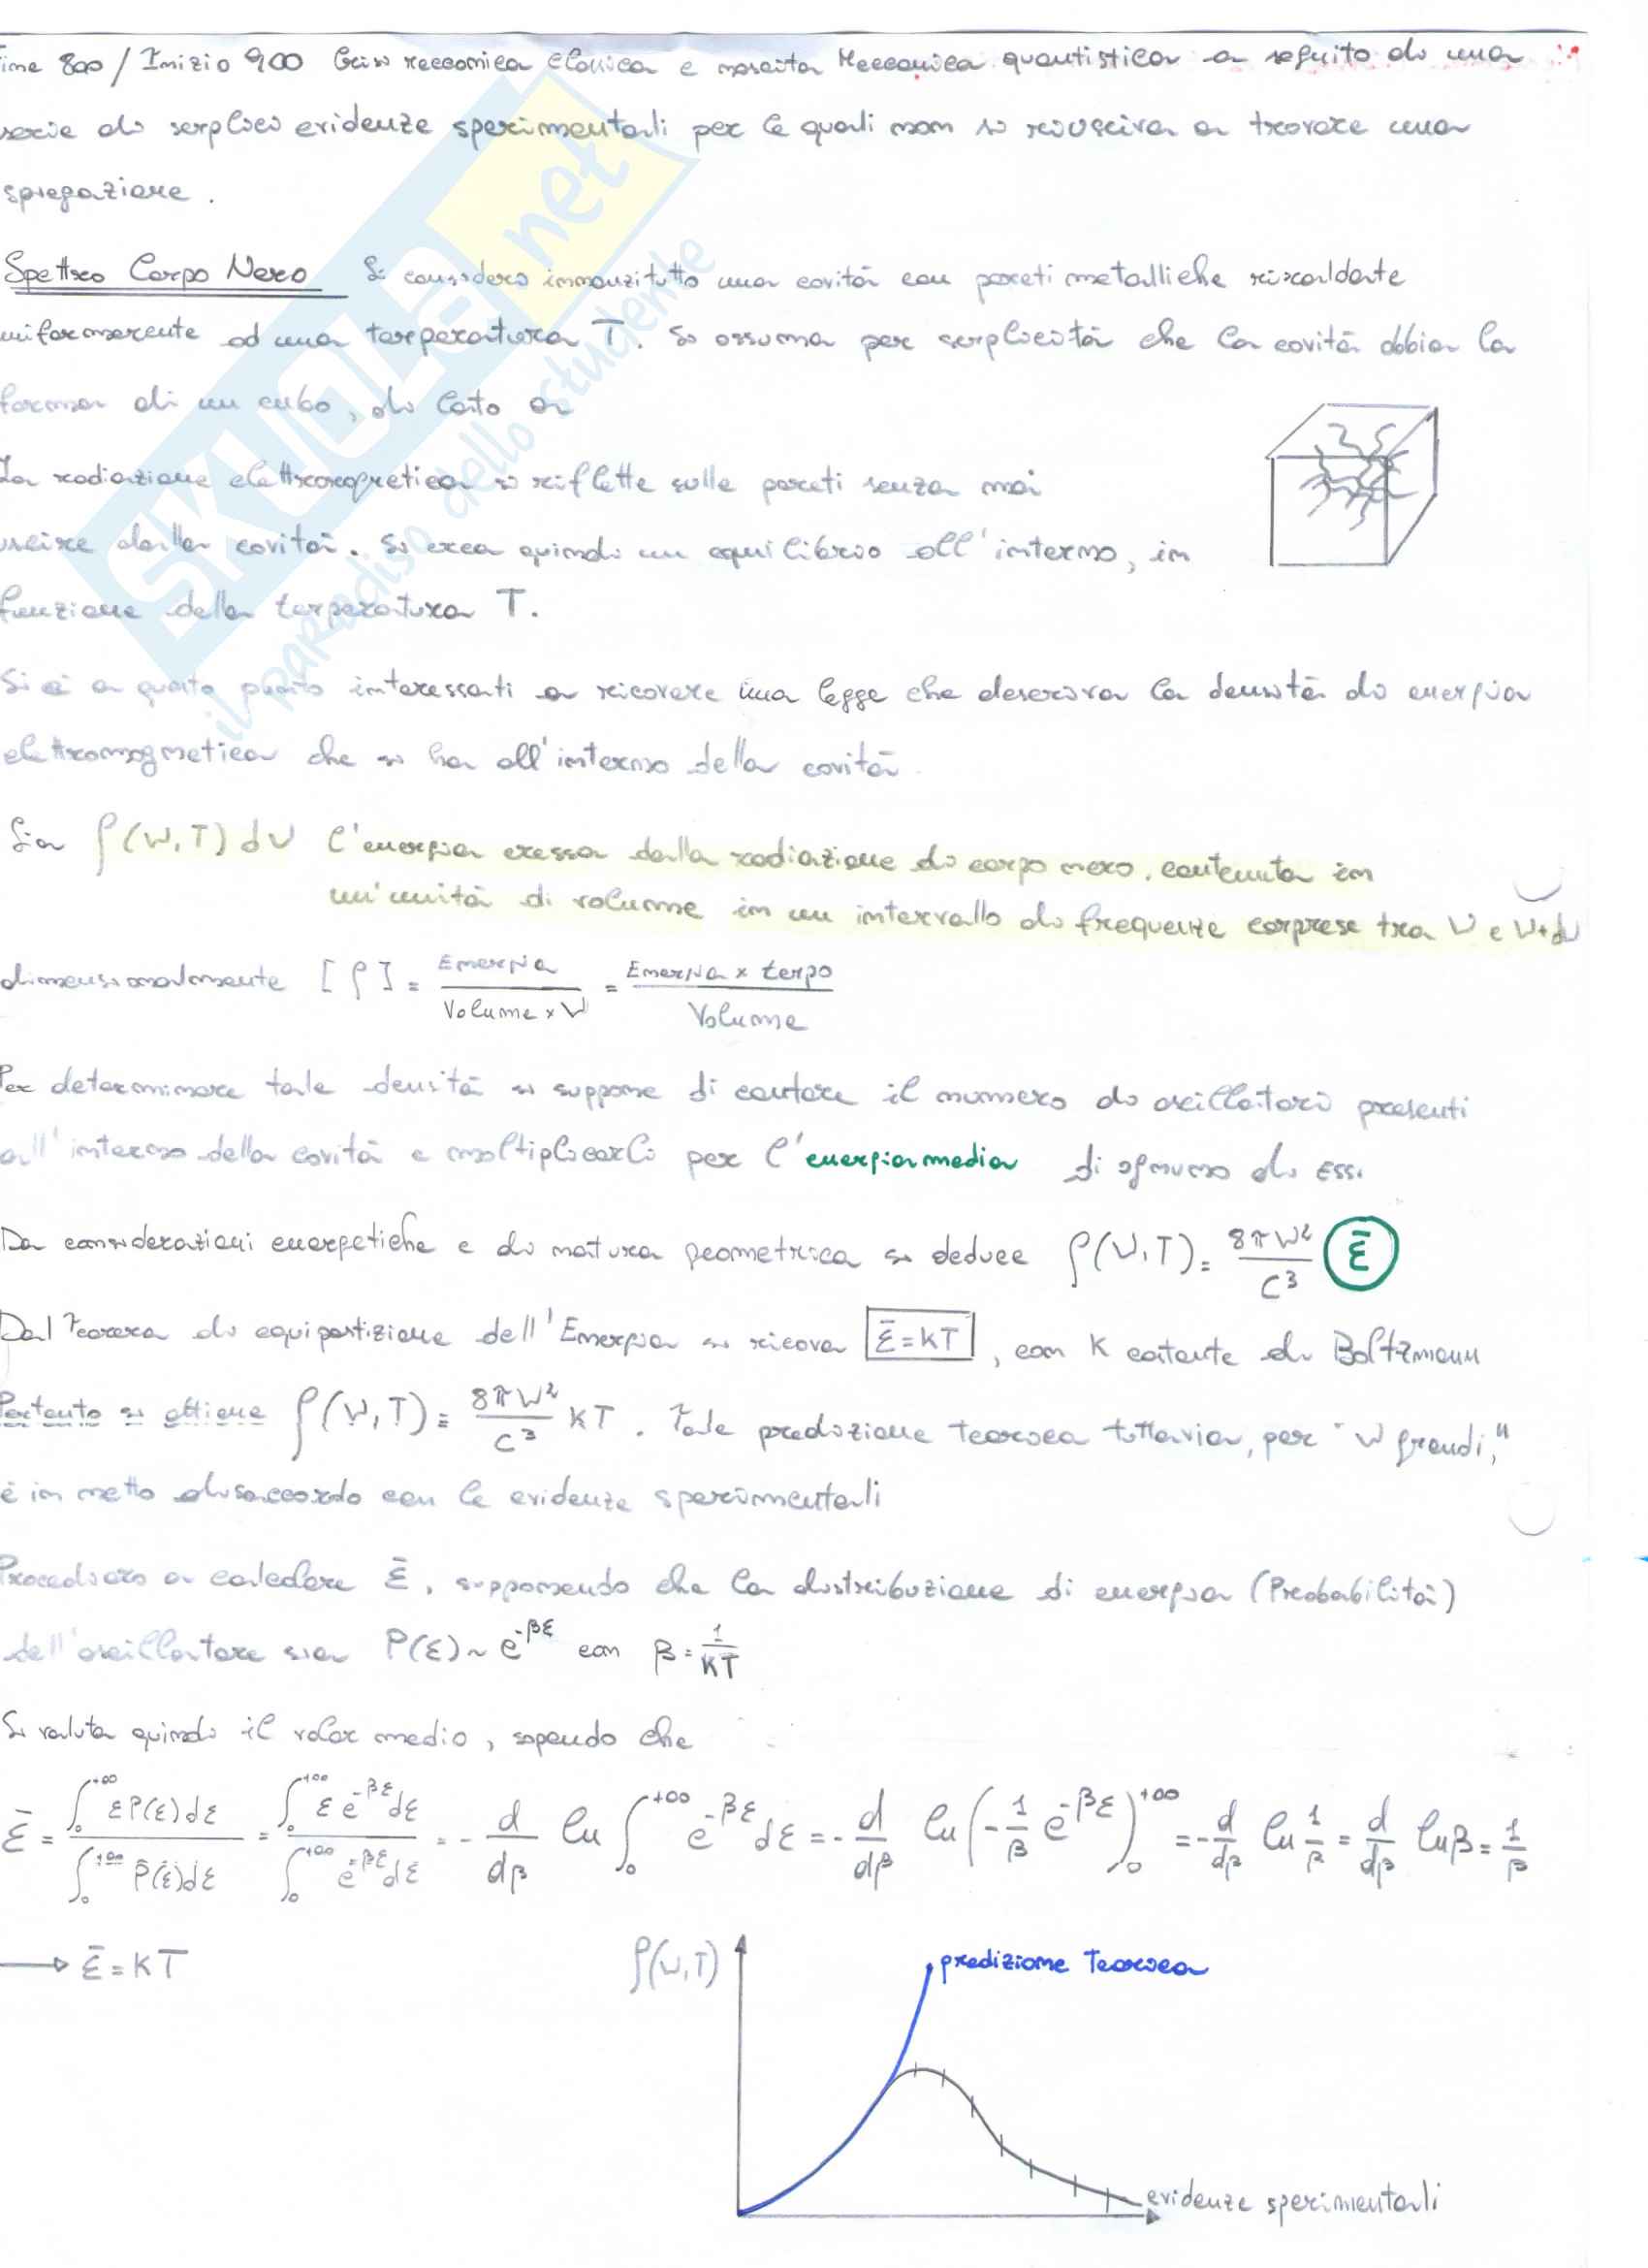 Fine 800 / Inizio 900 Crisi meccanica classica e nascita Meccanica quantistica a seguito di una
serie di semplici evidenze sperimentali per le quali non si riusciva a trovare una
spiegazione.
Spettro Corpo Nero Si consideri innanzitutto una cavità con pareti metalliche riscaldate
uniformemente ad una temperatura T. Si assuma per semplicità che la cavità abbia la
forma di un cubo, di lato a
La radiazione elettromagnetica si riflette sulle pareti senza mai
uscire dalla cavità. Si crea quindi un equilibrio all'interno, in
funzione della temperatura T.
Si è a questo punto interessati a ricavare una legge che descriva la densità di energia
elettromagnetica che si ha all'interno della cavità.
Sia ρ(ν,T)dν l'energia emessa dalla radiazione di corpo nero, contenuta in
un'unità di volume in un intervallo di frequenze comprese tra ν e ν+dν
dimensionalmente [ρ] = Energia / (Volume × ν) = Energia × tempo / Volume
Per determinare tale densità si suppone di contare il numero di oscillatori presenti
all'interno della cavità e moltiplicarli per l'energia media di ognuno di essi
Da considerazioni energetiche e di natura geometrica si deduce ρ(ν,T) = 8πν²/c³ ε̄
Dal teorema di equipartizione dell'Energia si ricava ε̄ = kT, con K costante di Boltzmann
Pertanto si ottiene ρ(ν,T) = 8πν²/c³ KT. Tale predizione teorica tuttavia, per "ν grandi,"
è in netto disaccordo con le evidenze sperimentali
Procediamo a calcolare ε̄, supponendo che la distribuzione di energia (Probabilità)
dell'oscillatore sia P(ε) ~ e^{-βε} con β = 1/KT
Si valuta quindi il valor medio, sapendo che
ε̄ = ∫₀^{+∞} εP(ε)dε / ∫₀^{+∞} P(ε)dε = ∫₀^{+∞} ε e^{-βε}dε / ∫₀^{+∞} e^{-βε}dε = - d/dβ ln ∫₀^{+∞} e^{-βε}dε = - d/dβ ln(-1/β e^{-βε})₀^{+∞} = - d/dβ ln 1/β = d/dβ lnβ = 1/β
→ ε̄ = KT
ρ(ν,T)
predizione teorica
evidenze sperimentali
SKUOLA.net
il paradiso dello studente